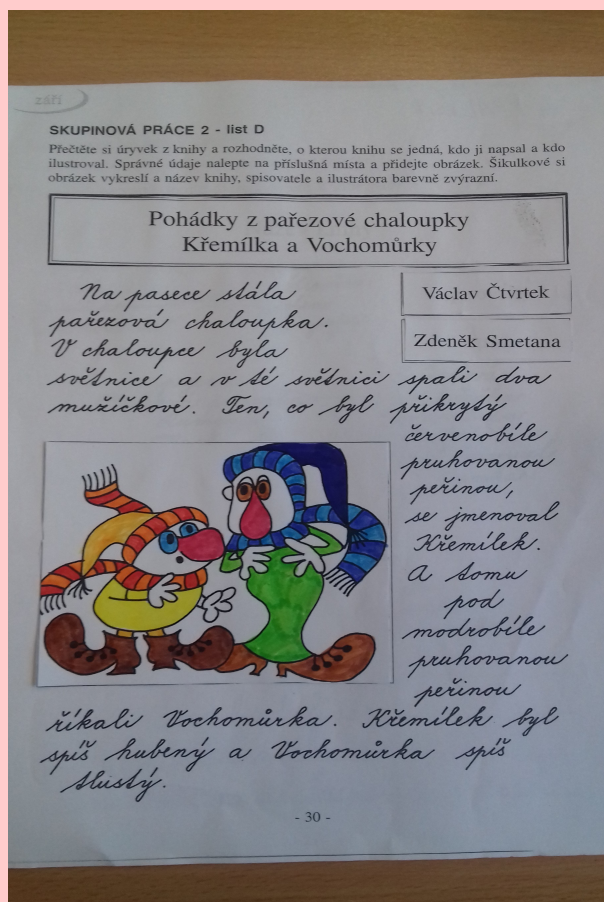 září
SKUPINOVÁ PRÁCE 2 - list D
Přečtěte si úryvek z knihy a rozhodněte, o kterou knihu se jedná, kdo ji napsal a kdo
ilustroval. Správné údaje nalepte na příslušná místa a přidejte obrázek. Šikulkové si
obrázek vykreslí a název knihy, spisovatele a ilustrátora barevně zvýrazní.
Pohádky z pařezové chaloupky
Křemílka a Vochomůrky
Václav Čtvrtek
Zdeněk Smetana
Na pasece stála
pařezová chaloupka.
V chaloupce byla
světnice a v té světnici spali dva
mužíčkové. Ten, co byl přikrytý
červenobíle
pruhovanou
peřinou,
se jmenoval
Křemílek.
A tomu
pod
modrobíle
pruhovanou
peřinou
říkali Vochomůrka. Křemílek byl
spíš hubený a Vochomůrka spíš
tlustý.
- 30 -